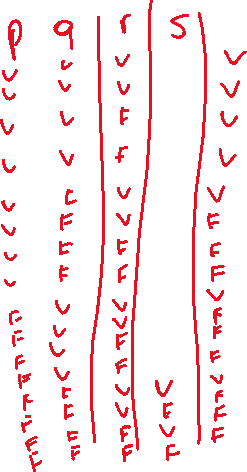 p q r s
V V V V
V V V V
V V F V
V V F V
V F V V
V F V F
V F F F
V F F F
F V V V
F V V F
F V F F
F V F F
F F V V V
F F V F F
F F F V F
F F F F F